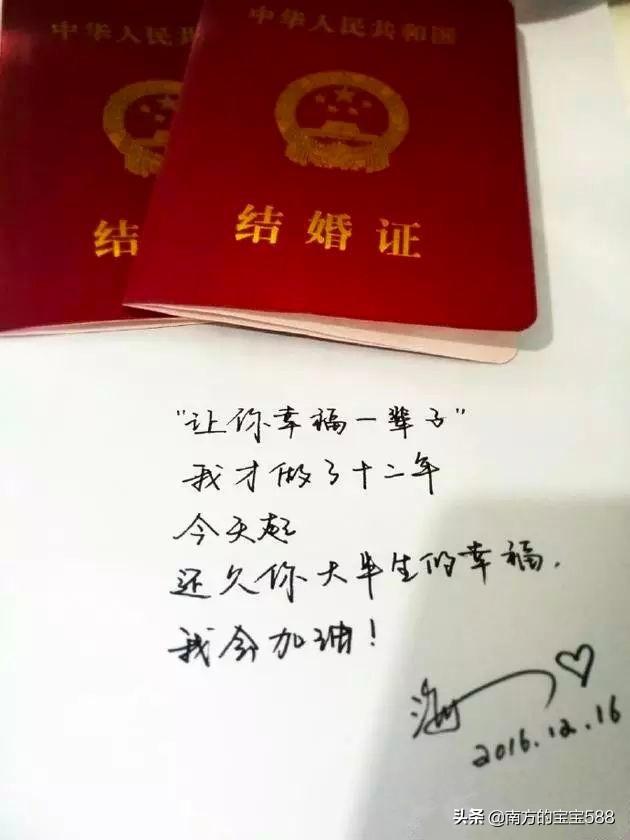 中华人民共
中华人民共和国
结
结婚证
"让你幸福一辈子"
我才做了十二年
今天起
还欠你大半生的幸福.
我会加油！
海
2016.12.16
头条 @南方的宝宝588